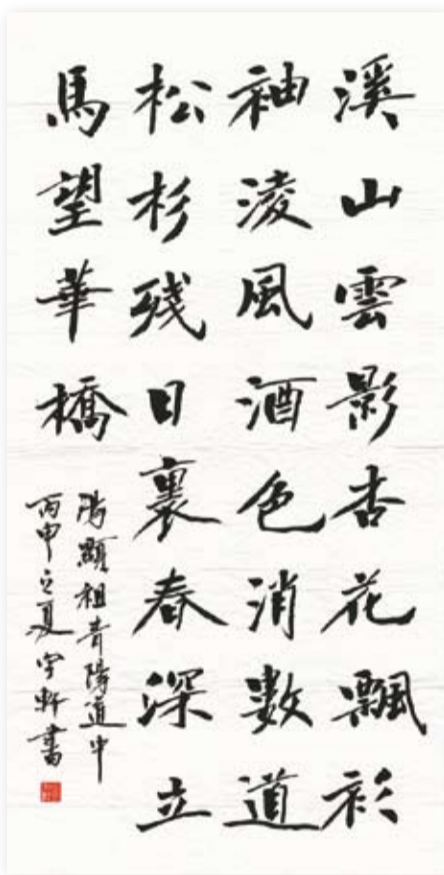 溪山雲影杏花飄衫
袖淩風酒色消數道
松杉殘日裏春深立
馬望華橋
湯顯祖青陽道中
丙申之夏宇軒書